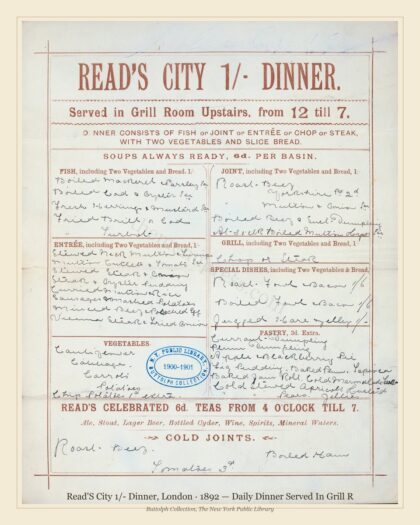 READ'S CITY 1/- DINNER.
Served in Grill Room Upstairs, from 12 till 7.
DINNER CONSISTS OF FISH or JOINT or ENTRÉE or CHOP or STEAK,
WITH TWO VEGETABLES AND SLICE BREAD.
SOUPS ALWAYS READY, 6d. PER BASIN.
FISH, including Two Vegetables and Bread, 1/
Boiled Mackerel & Parsley
Boiled Cod & Oyster
Fresh Herrings & Mustard
Fried Brill & Cod
Turbot
ENTRÉE, including Two Vegetables and Bread, 1/
Stewed Neck Mutton &
Mutton Cutlets & Tomato
Stewed Steak &
Steak & Oyster Pudding
Curried
Sausages & Mashed Potatoes
Minced Beef & Poached
Vienna Steak & Fried Onion
VEGETABLES
Cauliflower
Cabbage
Carrots
Potatoes
Chip Potatoes 1d extra
JOINT, including Two Vegetables and Bread, 1/
Roast Beef
Yorkshire 2d
Mutton & Onion
Boiled Beef & Suet Dumpling
Boiled Mutton
GRILL, including Two Vegetables and Bread, 1/
Chop or Steak
SPECIAL DISHES, including Two Vegetables & Bread,
Roast Fowl & Bacon 1/6
Boiled Fowl & Bacon 1/6
Jugged Hare & Jelly 1/
PASTRY, 3d. Extra.
Currant Dumpling
Plum Dumpling
Apple & Blackberry Pie
Fig Pudding Baked Tapioca
Baked Jam Roll Cold
Cold Stewed Apricots Custard
Pears Jellies
N.Y. PUBLIC LIBRARY
1900-1901
BUTTOLPH COLLECTION.
READ'S CELEBRATED 6d. TEAS FROM 4 O'CLOCK TILL 7.
Ale, Stout, Lager Beer, Bottled Cyder, Wine, Spirits, Mineral Waters.
COLD JOINTS.
Roast Beef
Boiled Ham
Tomatoes 3d
Read'S City 1/- Dinner, London · 1892 — Daily Dinner Served In Grill R
Buttolph Collection, The New York Public Library